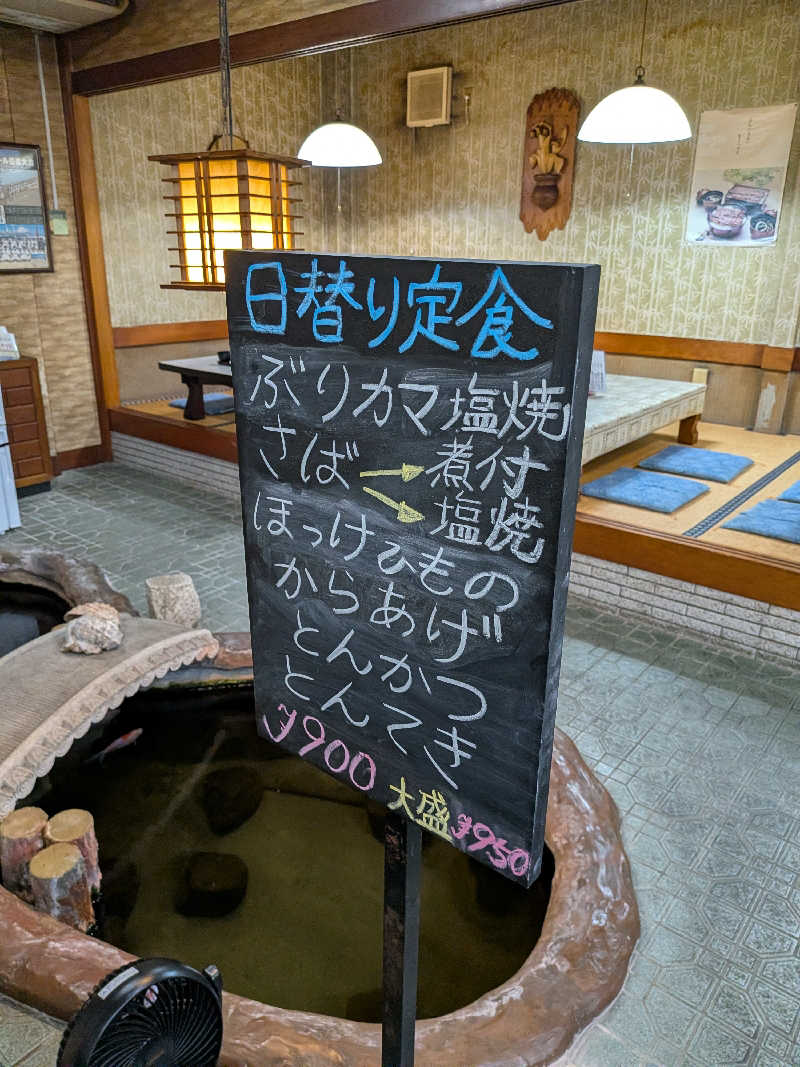 日替り定食
ぶりカマ塩焼
さば→煮付
→塩焼
ほっけひもの
からあげ
とんかつ
とんてき
¥900 大盛¥950